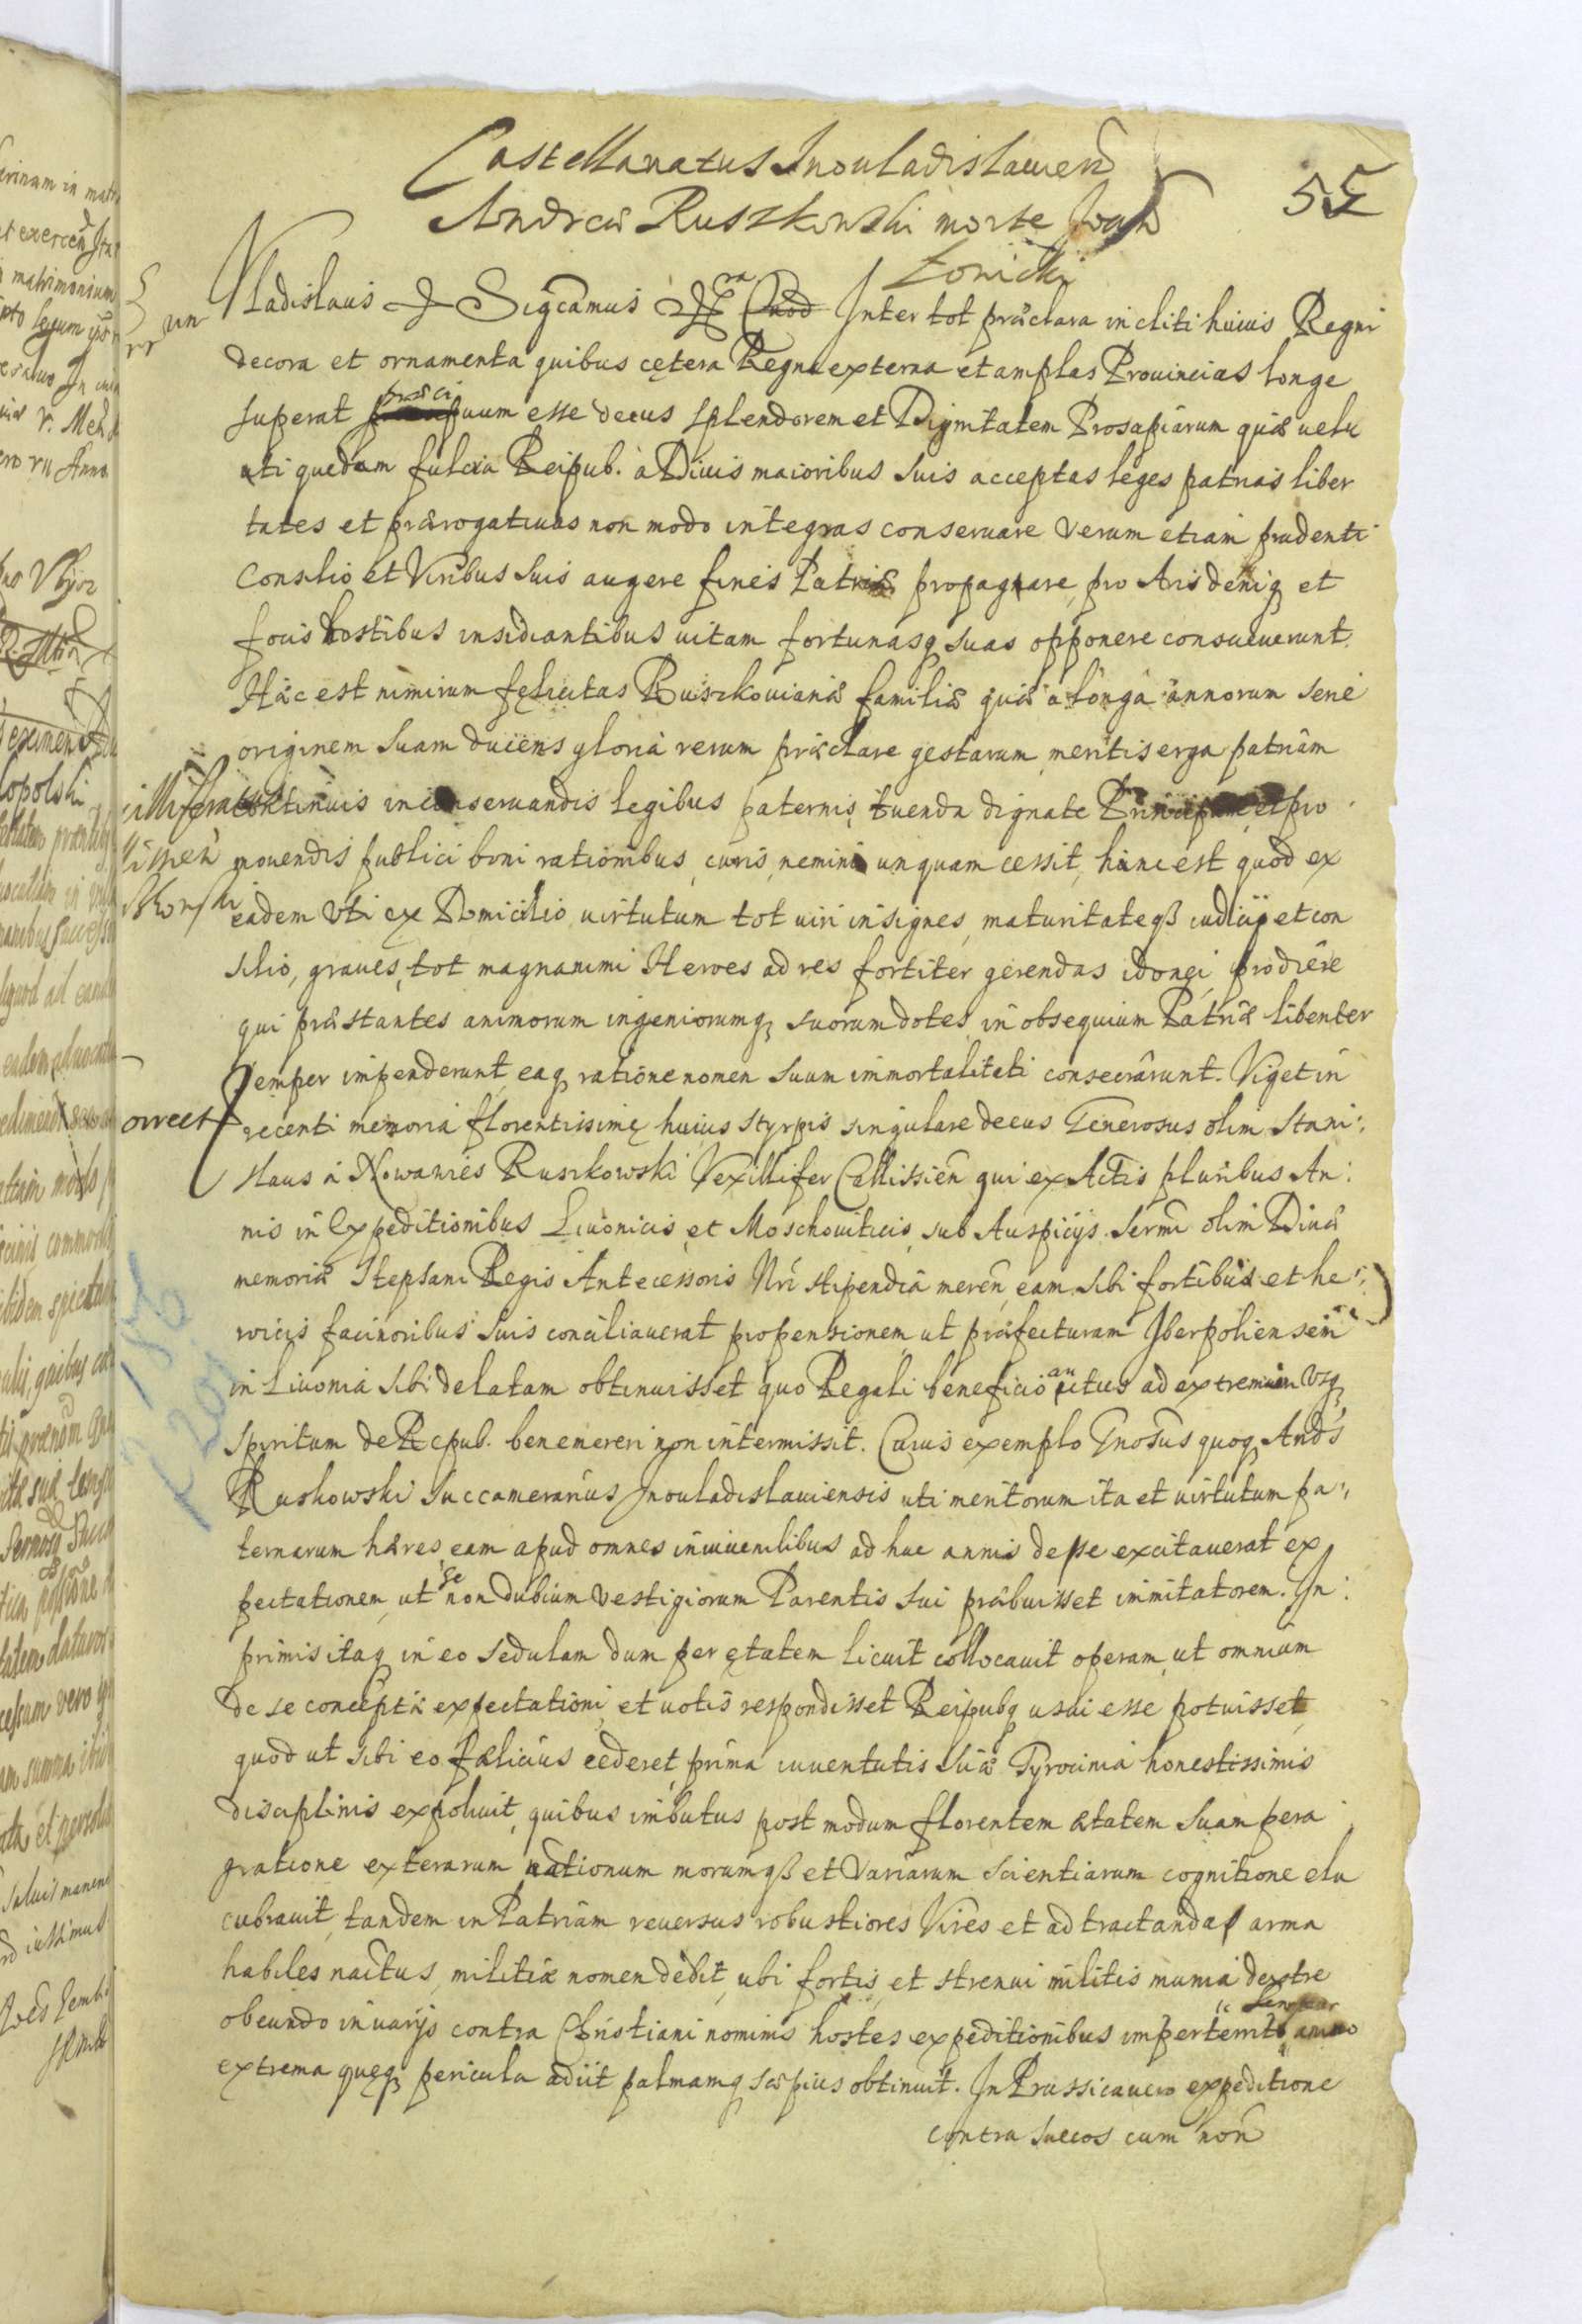 Castellanatus Inouladislauien
Andreæ Ruszkowski morte Joan
Łonicki
55
Vladislaus & Sigcamus &ra Quod Inter tot præclara incliti huius Regni
decora et ornamenta quibus cętera Regna externa et amplas Prouincias longe
superat præcipuum esse decus splendorem et Dignitatem Prosapiarum quæ uelu
uti quędam fulcra Reipub. à Diuis maioribus suis acceptas leges patrias liber
tates et prærogatiuas non modo integras conseruare verum etiam prudenti
Consilio et Viribus suis augere fines Patriæ propagnare, pro Aris deniq et
focis hostibus insidiantibus uitam fortunasq suas opponere consueuerunt.
Hæc est nimirum fęlicitas Ruszkouianæ familiæ quæ a longa annorum serie
originem suam ducens gloria rerum præclare gestarum meritis erga patriam
continuis in conseruandis legibus paternis, tuenda dignate Principum, et pro
mouendis publici boni rationibus, curis, nemini unquam cessit, hinc est quod ex
eadem Vti ex Domicilio uirtutum tot uiri insignes, maturitateqß iudicij et con
silio, graues, tot magnanimi Heroes ad res fortiter gerendas idonei prodiere
qui præstantes animorum ingeniorumq suorum dotes in obsequium Patriæ libenter
semper impenderunt, eaq ratione nomen suum immortalitati consecrârunt. Viget in
orrect
recenti memoria florentissimę huius styrpis singulare decus Generosus olim Stani:
slaus à Nowawies Ruszkowski Vexillifer Callissien qui exActis pluribus An:
nis in Expeditionibus Liuonicis et Moschouiticis sub Auspicijs Sermi olim Diuæ
memoriæ Stephani Regis Antecessoris Nri stipendia meren, eam sibi fortibus et he:
roicis facinoribus suis conciliauerat propensionem, ut præfecturam Iberpoliensem
in Liuonia sibi delatam obtinuisset quo Regali beneficio auctus ad extremum Vsq
Spiritum de Repub. benemereri non intermissit. Cuius exemplo Gnosus quoq Ands
Ruskowski Succamerarius Inouladislauiensis uti meritorum ita et uirtutum pa:,
ternarum hæres, eam apud omnes in iuuenilibus ad huc annis de se excitauerat ex
pectationem, ut se non dubium vestigiorum Parentis sui præbuisset immitatorem. In:
primis itaq in eo sedulam dum per ętatem licuit collocauit operam, ut omnium
de se conceptæ expectationi et uotis respondisset Reipubq usui esse potuisset,
quod ut sibi eo fælicius cederet, prima iuuentutis suæ Tyrocinia honestissimis
disciplinis expoliuit, quibus imbutus post modum florentem ætatem suam pera
gratione exterarum nationum morumqß et Variarum scientiarum cognitione elu
cubrauit, tandem in Patriam reuersus robustiores Vires et ad tractanda arma
habiles nactus, militiæ nomen dedit, ubi fortis, et strenui militis munia dextre
obeundo in uarijs contra Christiani nominis hostes expeditionibus imperterrito semper animo
extrema quęq pericula adiit palmamq sæpius obtinuit. In Prussica uero expeditione
contra Suecos cum non